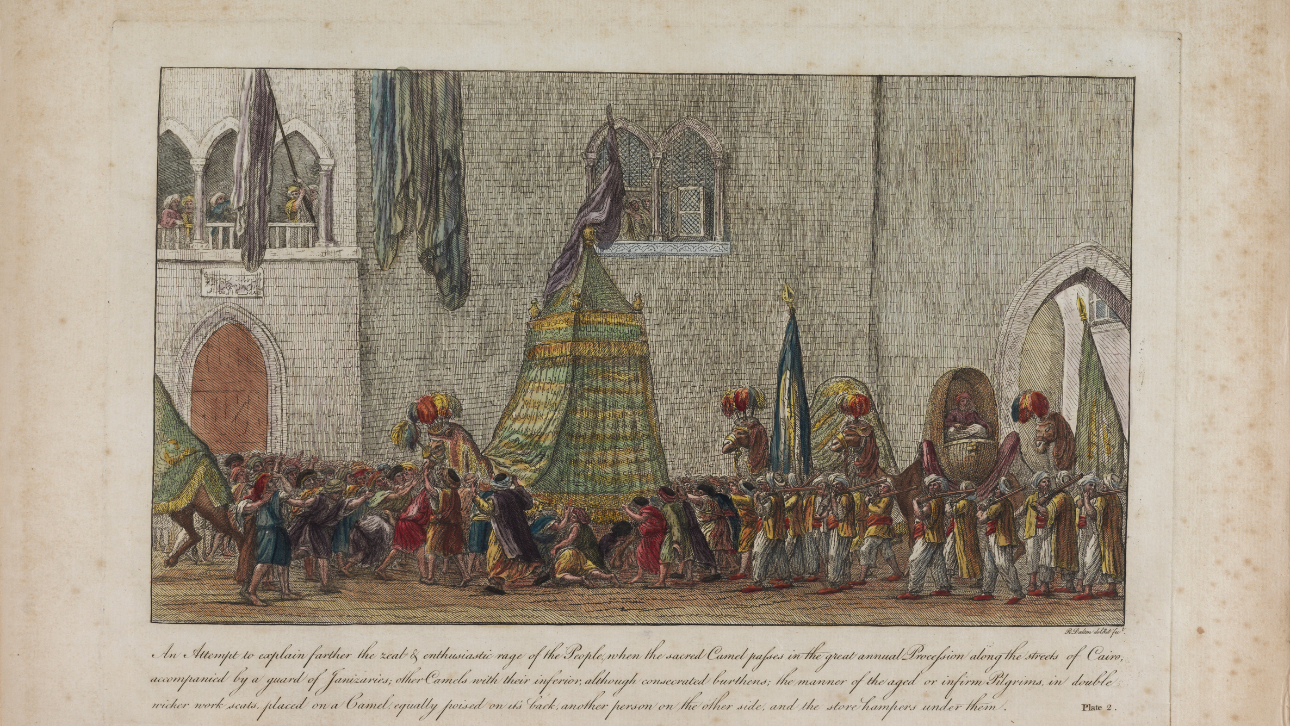 R. Dalton delin.t & fec.t
An Attempt to explain farther the zeal & enthusiastic rage of the People, when the sacred Camel passes in the great annual Procession along the streets of Cairo,
accompanied by a guard of Janizaries; other Camels with their inferior, although consecrated burthens; the manner of the aged or infirm Pilgrims, in double
wicker work seats, placed on a Camel, equally poised on its back, another person on the other side, and the store hampers under them.
Plate 2.